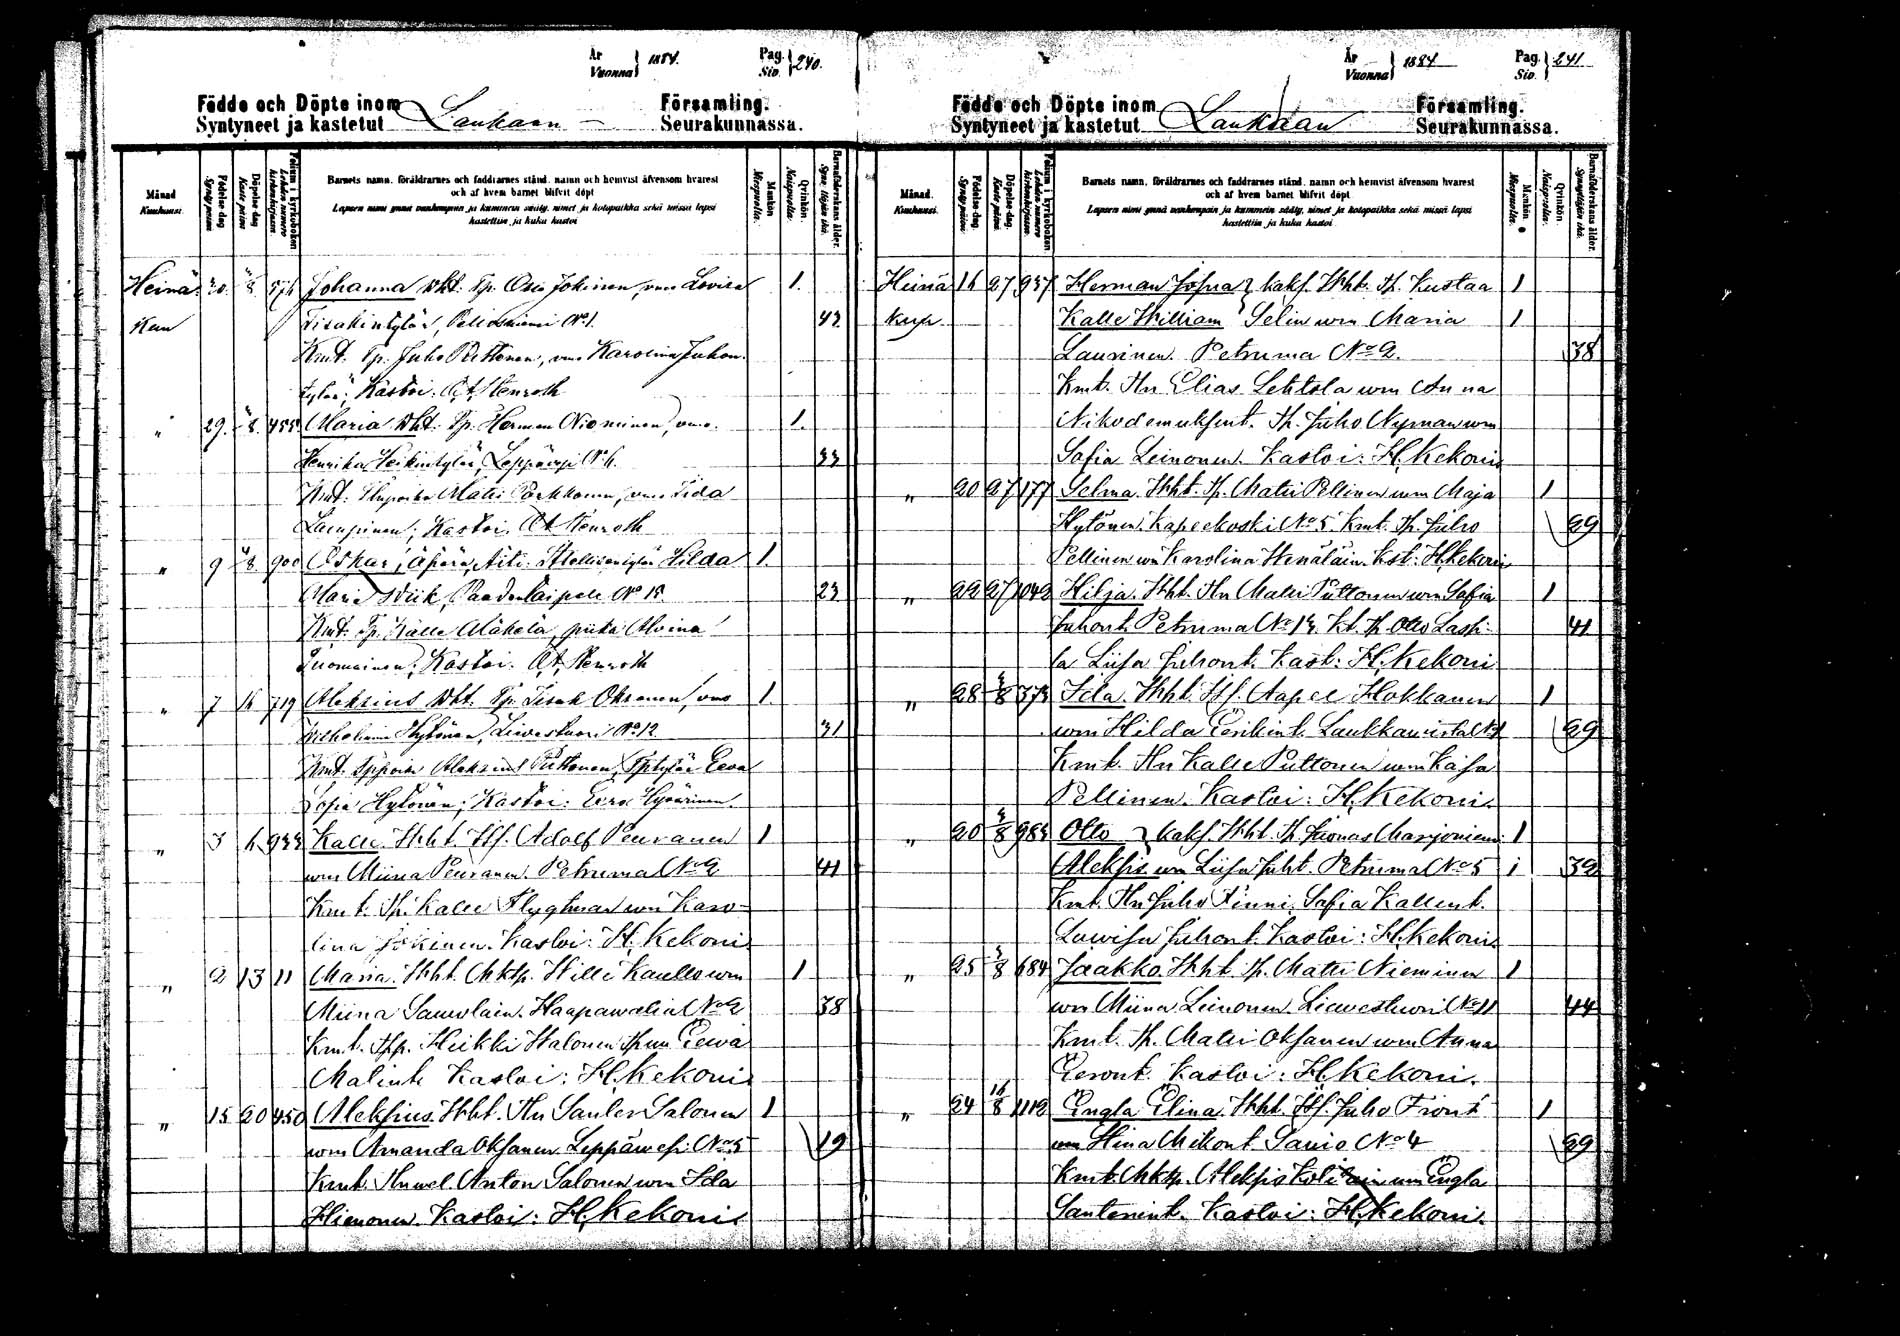 År Vuonna } 1884. Pag. Siv. } 240.
Födde och Döpte inom Laukaan Församling.
Syntyneet ja kastetut Seurakunnassa.
Månad Kuukausi.
Födelse-dag Syntypäivä.
Döpelse-dag Kaste päivä
Folium i kyrkoboken Lehden numero kirkonkirjassa.
Barnets namn, föräldrarnes och faddrarnes stånd, namn och hemvist äfvensom hvarest
och af hvem barnet blifvit döpt
Lapsen nimi ynnä vanhempain ja kummein sääty, nimet ja kotopaikka sekä missä lapsi
kastettiin ja kuka kastoi
Mankön Miespuolta.
Qvinkön Naispuolta.
Barnaföderskans ålder. Synnyttäjän ikä.
Heinä 8 Johanna Wht. Tp. Jokinen, vmo Lovisa 1.
Kuu Iisakintytär, No 1. 43
Kmt. Tp. Juho Puttonen, vmo Karolina Juhon
tytär; Kastoi: A. Stenroth
" 29. 8. 455 Maria Wht. Tp. Herman Nieminen, vmo. 1.
Henrika Heikintytär, Leppävesi No 6. 33
Kmt. Matti Parkkonen, vmo Iida
Laupinen; Kastoi A. Stenroth
" 9 8 900 Oskar, äpärä, Äiti: Hilda 1.
Maria Wiik, Paadentaipale No 15. 23
Kmt. Tp. Kalle Mäkelä, piika Alvina
Tuomainen; Kastoi: A. Stenroth
" 7 16 719 Aleksius Wht. Tp. Iisak Oksanen, vmo 1.
Wilhelmina Hytönen, Lievestuori No 12 31
Kmt. Aleksius Puttonen, Tptytär Eeva
Sofia Hytönen; Kastoi: Eero Hyvärinen.
" 3 6 933 Kalle. Wht. Itf. Adolf Peuranen 1
wm Miina Peuranen. Petruma No 2 41
Kmt. Tp. Kalle Flygtman wm Karo-
lina Jokinen. Kastoi: H. Kekoni
" 2 13 11 Maria. Wht. Mktp. Wille Kaullo wm 1
Miina Sauvolain. Haapawatia No 2 38
Kmt. Tpp. Heikki Halonen Tp wm Eewa
Matint. Kastoi: H. Kekoni
" 15 20 450 Aleksius. Wht. Itn Santer Salonen 1
wm Amanda Oksanen. Leppäwesi No 5 19
Kmt. Itn wel. Anton Salonen wm Ida
Hienonen. Kastoi: H. Kekoni
År Vuonna } 1884 Pag. Siv. } 241
Födde och Döpte inom Laukaan Församling.
Syntyneet ja kastetut Seurakunnassa.
Månad. Kuukausi.
Födelse-dag. Syntypäivä.
Döpelse-dag. Kaste päivä.
Folium i kyrkoboken Lehden numero kirkonkirjassa.
Barnets namn, föräldrarnes och faddrarnes stånd, namn och hemvist äfvensom hvarest
och af hvem barnet blifvit döpt
Lapsen nimi ynnä vanhempain ja kummein sääty, nimet ja kotopaikka sekä missä lapsi
kastettiin ja kuka kastoi
Mankön. Miespuolta.
Qvinkön Naispuolta.
Barnaföderskans ålder. Synnyttäjän ikä.
Heinä 16 27 937 Herman Josua } kaks. Wht. Tp. Kustaa 1
kuu Kalle William } Selin wm Maria 1
Laurinen. Petruma No 2. 38
Kmt. Itn Elias Lehtola wm Anna
Nikodemuksent. Tp. Juho Nyman wm
Sofia Leinonen. Kastoi: H. Kekoni
" 20 27 177 Selma. Wht. Tp. Matti Pellinen wm Maja 1
Hytönen. Kapeekoski No 5. Kmt. Tp. Juho 29
Pellinen wm Karolina Wenäläin. Kst: H. Kekoni
" 22 27 1042 Hilja. Wht. Itn Matti Puttonen wm Sofia 1
Juhont. Petruma No 14. Kt. Tp. Otto Lassi- 41
la Liisa Juhont. Kast: H. Kekoni
" 28 3/8 373 Ida. Wht. Itf. Aapel Hokkanen 1
wm Hilda Eerikint. Laukkawirta No 1 29
Kmt. Itn Kalle Puttonen wm Kaisa
Pellinen. Kastoi: H. Kekoni.
" 20 3/8 983 Otto } kaks. Wht. Tp. Tuomas Marjoniemi 1
Aleksis wm Liisa Juht. Petruma No 5 1 39
Kmt. Itn Juho Finni. Sofia Kallent.
Lowisa Juhont. Kastoi: H. Kekoni
" 25 3/8 684 Jaakko. Wht. Tp. Matti Nieminen 1
wm Miina Leinonen. Liewestuori No 11 44
Kmt. Tp. Matti Oksanen wm Anna
Eeront. Kastoi: H. Kekoni.
" 24 16/8 1112 Engla Elina. Wht. Itf. Juho Front 1
wm Stina Mikont. Savio No 4 29
Kmt. Mktp. Aleksis wm Engla
Santerint. Kastoi: H. Kekoni.